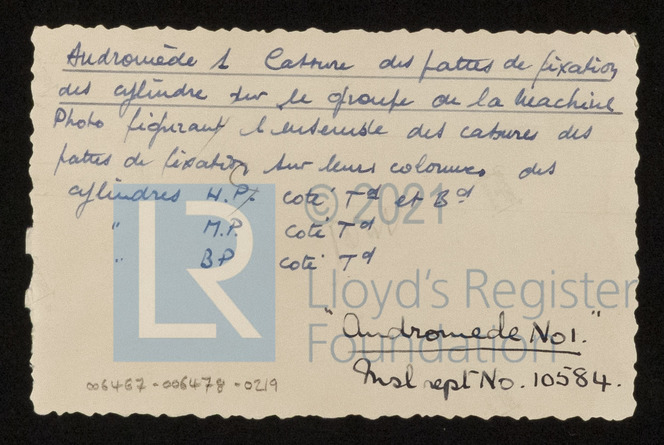 Andromède 1 Cassure des pattes de fixation
des cylindre sur le groupe de la Machine
Photo figurant l'ensemble des cassures des
pattes de fixation sur leurs colonnes des
cylindres H.P. coté Td et Bd
" M.P. coté Td
" BP coté Td
© 2021
LR
Lloyd's Register
Foundation
"Andromede No1."
rept No. 10584.
006467-006478-0219